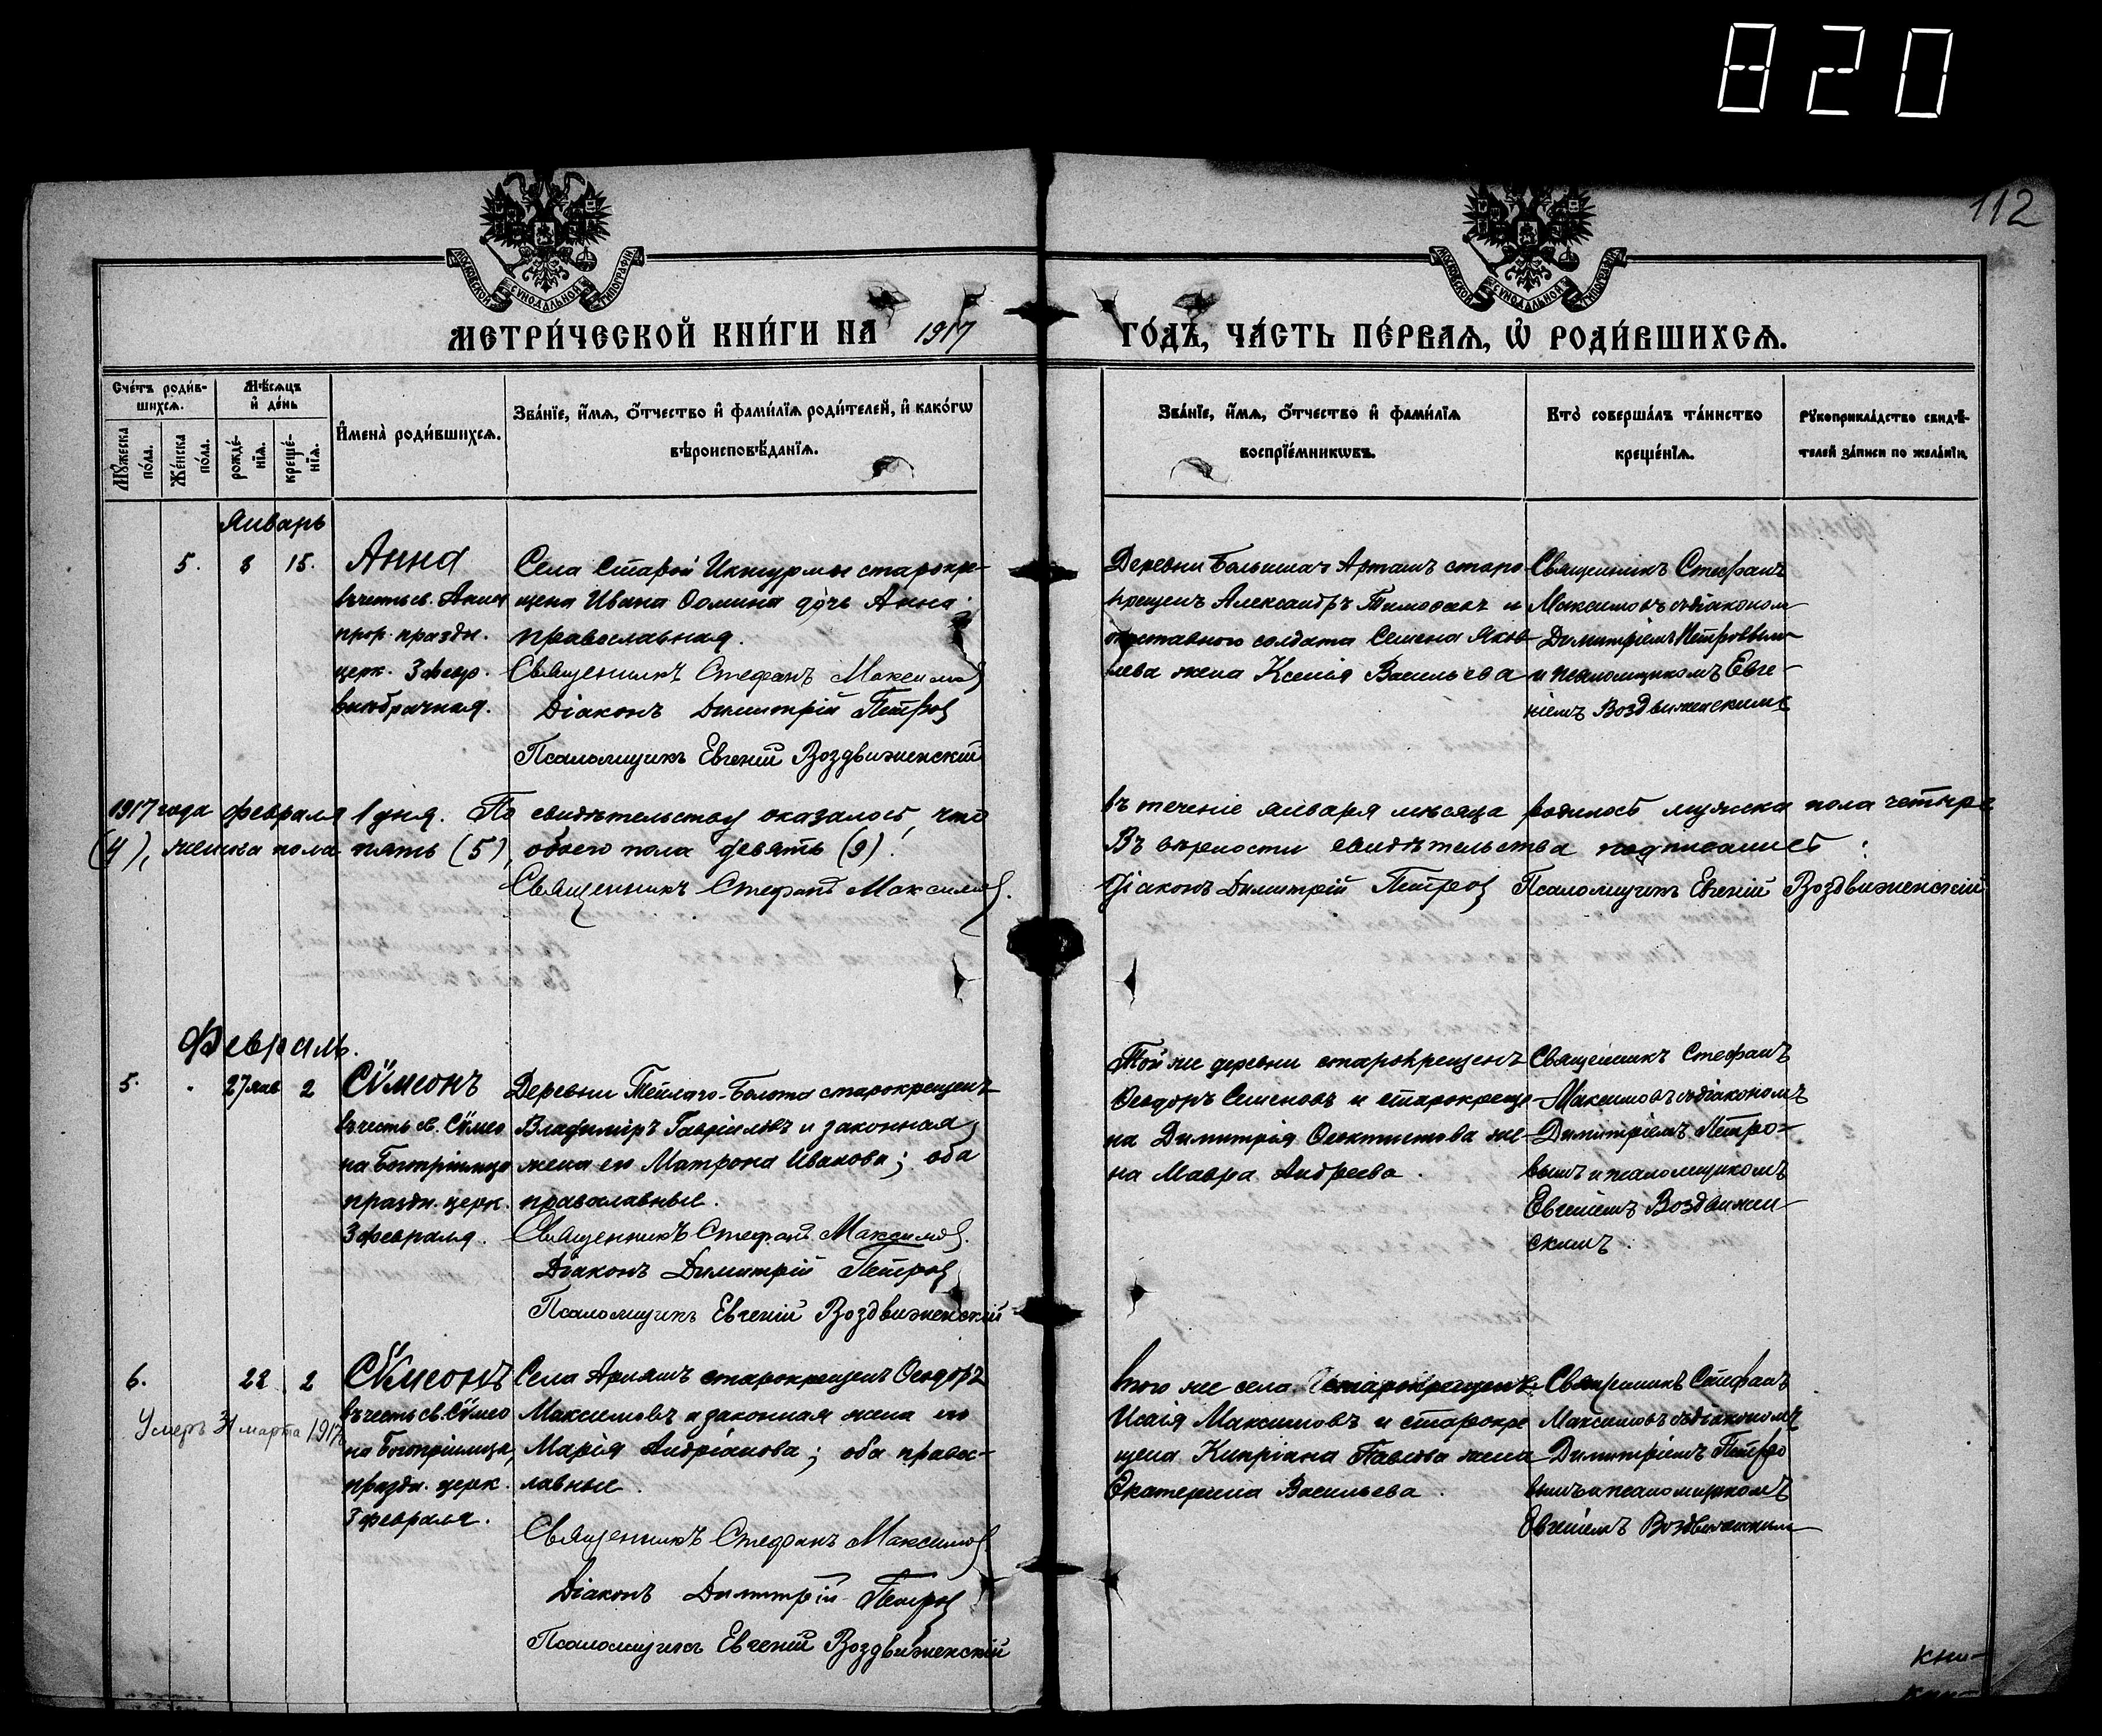 820
112
МОСКОВСКОЙ СѴНОДАЛЬНОЙ ТИПОГРАФІИ
МОСКОВСКОЙ СѴНОДАЛЬНОЙ ТИПОГРАФІИ
МЕТРИ́ЧЕСКОЙ КНИ́ГИ НА 1917 ГО́ДЪ, ЧА́СТЬ ПЕ́РВАѦ, Ѽ РОДИ́ВШИХСѦ.
Сче́тъ роди́в-
шихсѧ.
Мѣ́сѧцъ
и҆ де́нь
Мꙋ́жеска
по́ла.
Же́нска
по́ла.
рожде́-
нїѧ.
креще́-
нїѧ.
И҆мена̀ роди́вшихсѧ.
Зва́нїе, и҆́мѧ, ѻ҆́тчество и҆ фами́лїѧ роди́телей, и҆ како́гѡ
вѣроисповѣ́данїѧ.
Зва́нїе, и҆́мѧ, ѻ҆́тчество и҆ фами́лїѧ
воспрїе́мникѡвъ.
Кто̀ соверша́лъ та́инство
креще́нїѧ.
Рꙋкоприкла́дство свидѣ́-
телей за́писи по жела́нїю.
Январь
5. 8 15.
Анна
въ честь св. Анны
прор. праздн.
церк. 3 февр.
внѣбрачная.
Села Старой Икшурмы старокре-
щена Ивана Ѳомина дочь Анна
православная.
Священникъ Стефанъ Максимов
Діаконъ Димитрій Петров
Псаломщикъ Евгеній Воздвиженскій
Деревни Большихъ Арташъ старо
крещенъ Александръ Тимоѳеевъ и
отставного солдата Семена Яков
лева жена Ксенія Васильева
Священникъ Стефанъ
Максимовъ съ діакономъ
Димитріемъ Петровымъ
и псаломщикомъ Евге-
ніемъ Воздвиженскимъ
1917 года февраля 1 дня. По свидѣтельству оказалось, что въ теченіе января мѣсяца родилось мужска пола четыре
(4), женска пола пять (5), обоего пола девять (9). Въ вѣрности свидѣтельства подписались:
Священникъ Стефанъ Максимов. Діаконъ Димитрій Петров Псаломщикъ Евгеній Воздвиженскій
Февраль.
5. 27 янв 2
Сѷмеонъ
въ честь св. Сѷмео
на Богопріимца
праздн. церк.
3 февраля.
Деревни Теплаго-Болота старокрещенъ
Владиміръ Гавріиловъ и законная
жена его Матрона Иванова; оба
православные.
Священникъ Стефанъ Максимов.
Діаконъ Димитрій Петров
Псаломщикъ Евгеній Воздвиженскій
Той же деревни старокрещенъ
Ѳеодоръ Семеновъ и старокреще-
на Димитрія Ѳеоктистова же-
на Мавра Андреева.
Священникъ Стефанъ
Максимовъ съ діакономъ
Димитріемъ Петро-
вымъ и псаломщикомъ
Евгеніемъ Воздвижен-
скимъ.
6. 22 2
Умеръ 31 марта 1917
Сѷмеонъ
въ честь св. Сѷмео
на Богопріимца,
праздн. церк.
3 февраля.
Села Арняшъ старокрещенъ Ѳеодоръ
Максимовъ и законная жена его
Марія Андріанова; оба правос-
лавные.
Священникъ Стефанъ Максимов.
Діаконъ Димитрій Петров
Псаломщикъ Евгеній Воздвиженскій
того же села старокрещенъ
Исаія Максимовъ и старокре
щена Кипріана Павлова жена
Екатерина Васильева.
Священникъ Стефанъ
Максимовъ съ діакономъ
Димитріемъ Петро
вымъ и псаломщикомъ
Евгеніемъ Воздвиженскимъ
кни-